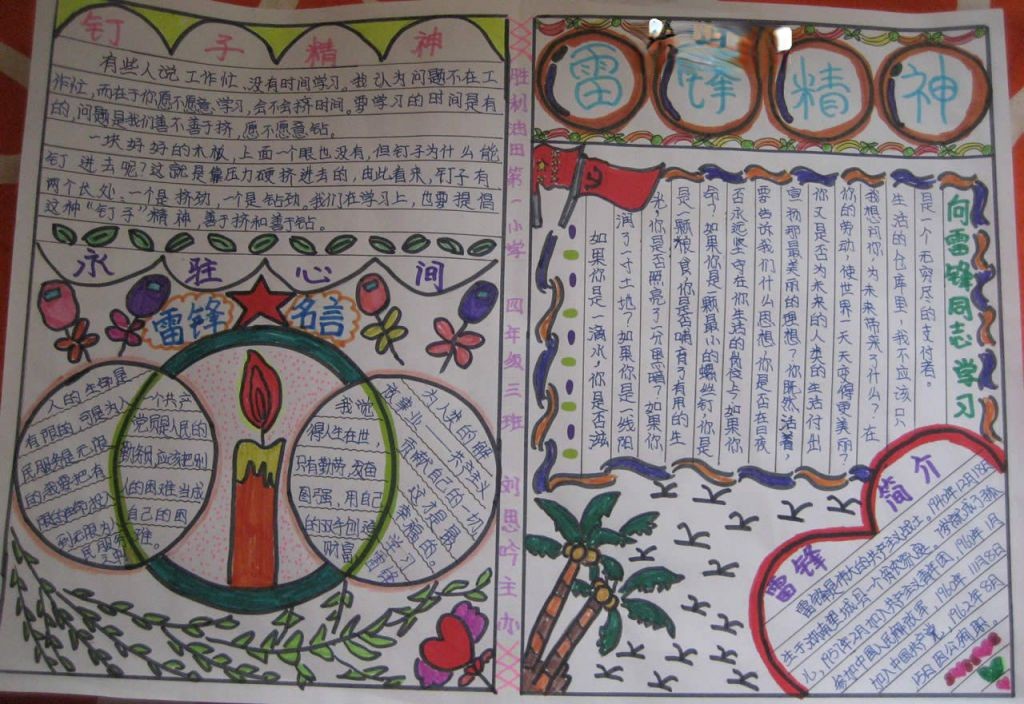 钉子精神
有些人说工作忙、没有时间学习。我认为问题不在工
作忙,而在于你愿不愿意学习,会不会挤时间。要学习的时间是有
的,问题是我们善不善于挤,愿不愿意钻。
一块好好的木板,上面一个眼也没有,但钉子为什么能
钉进去呢?这就是靠压力硬挤进去的,由此看来,钉子有
两个长处:一个是挤劲,一个是钻劲。我们在学习上,也要提倡
这种"钉子"精神,善于挤和善于钻。
永驻心间
雷锋名言
人的生命是
有限的,可是为人
民服务是无限
的,我要把有
一个共产
党员是人民的
勤务员,应该把别
人的困难当成
自己的困
难。
我觉
得人生在世,
只有勤劳,发奋
图强,用自己
的双手创造
财富
为人类的解
放事业——共产主义
贡献自己的一切,
这才是最
幸福的。
胜利油田第一小学 四年级三班 刘思吟主办
雷锋精神
向雷锋同志学习
如果你是一滴水,你是否滋
润了一寸土地?如果你是一线阳
光,你是否照亮了一分黑暗?如果你
是一颗粮食,你是否哺育了有用的生
命?如果你是一颗最小的螺丝钉,你是
否永远坚守在你生活的岗位上?如果你
要告诉我们什么思想,你是否在日夜
宣扬那最美丽的理想?你既然活着,
你又是否为未来的人类的生活付出
你的劳动,使世界一天天变得更美丽?
我想问你,为未来带来了什么?在
生活的仓库里,我不应该只
是一个无穷尽的支付者。
雷锋简介
雷锋是伟大的共产主义战士。1940年12月18日
生于湖南望城县一个贫农家庭。
1957年2月加入共产主义青年团,1960年1月
参加中国人民解放军,1960年11月8日
加入中国共产党,1962年8月
15日因公殉职。